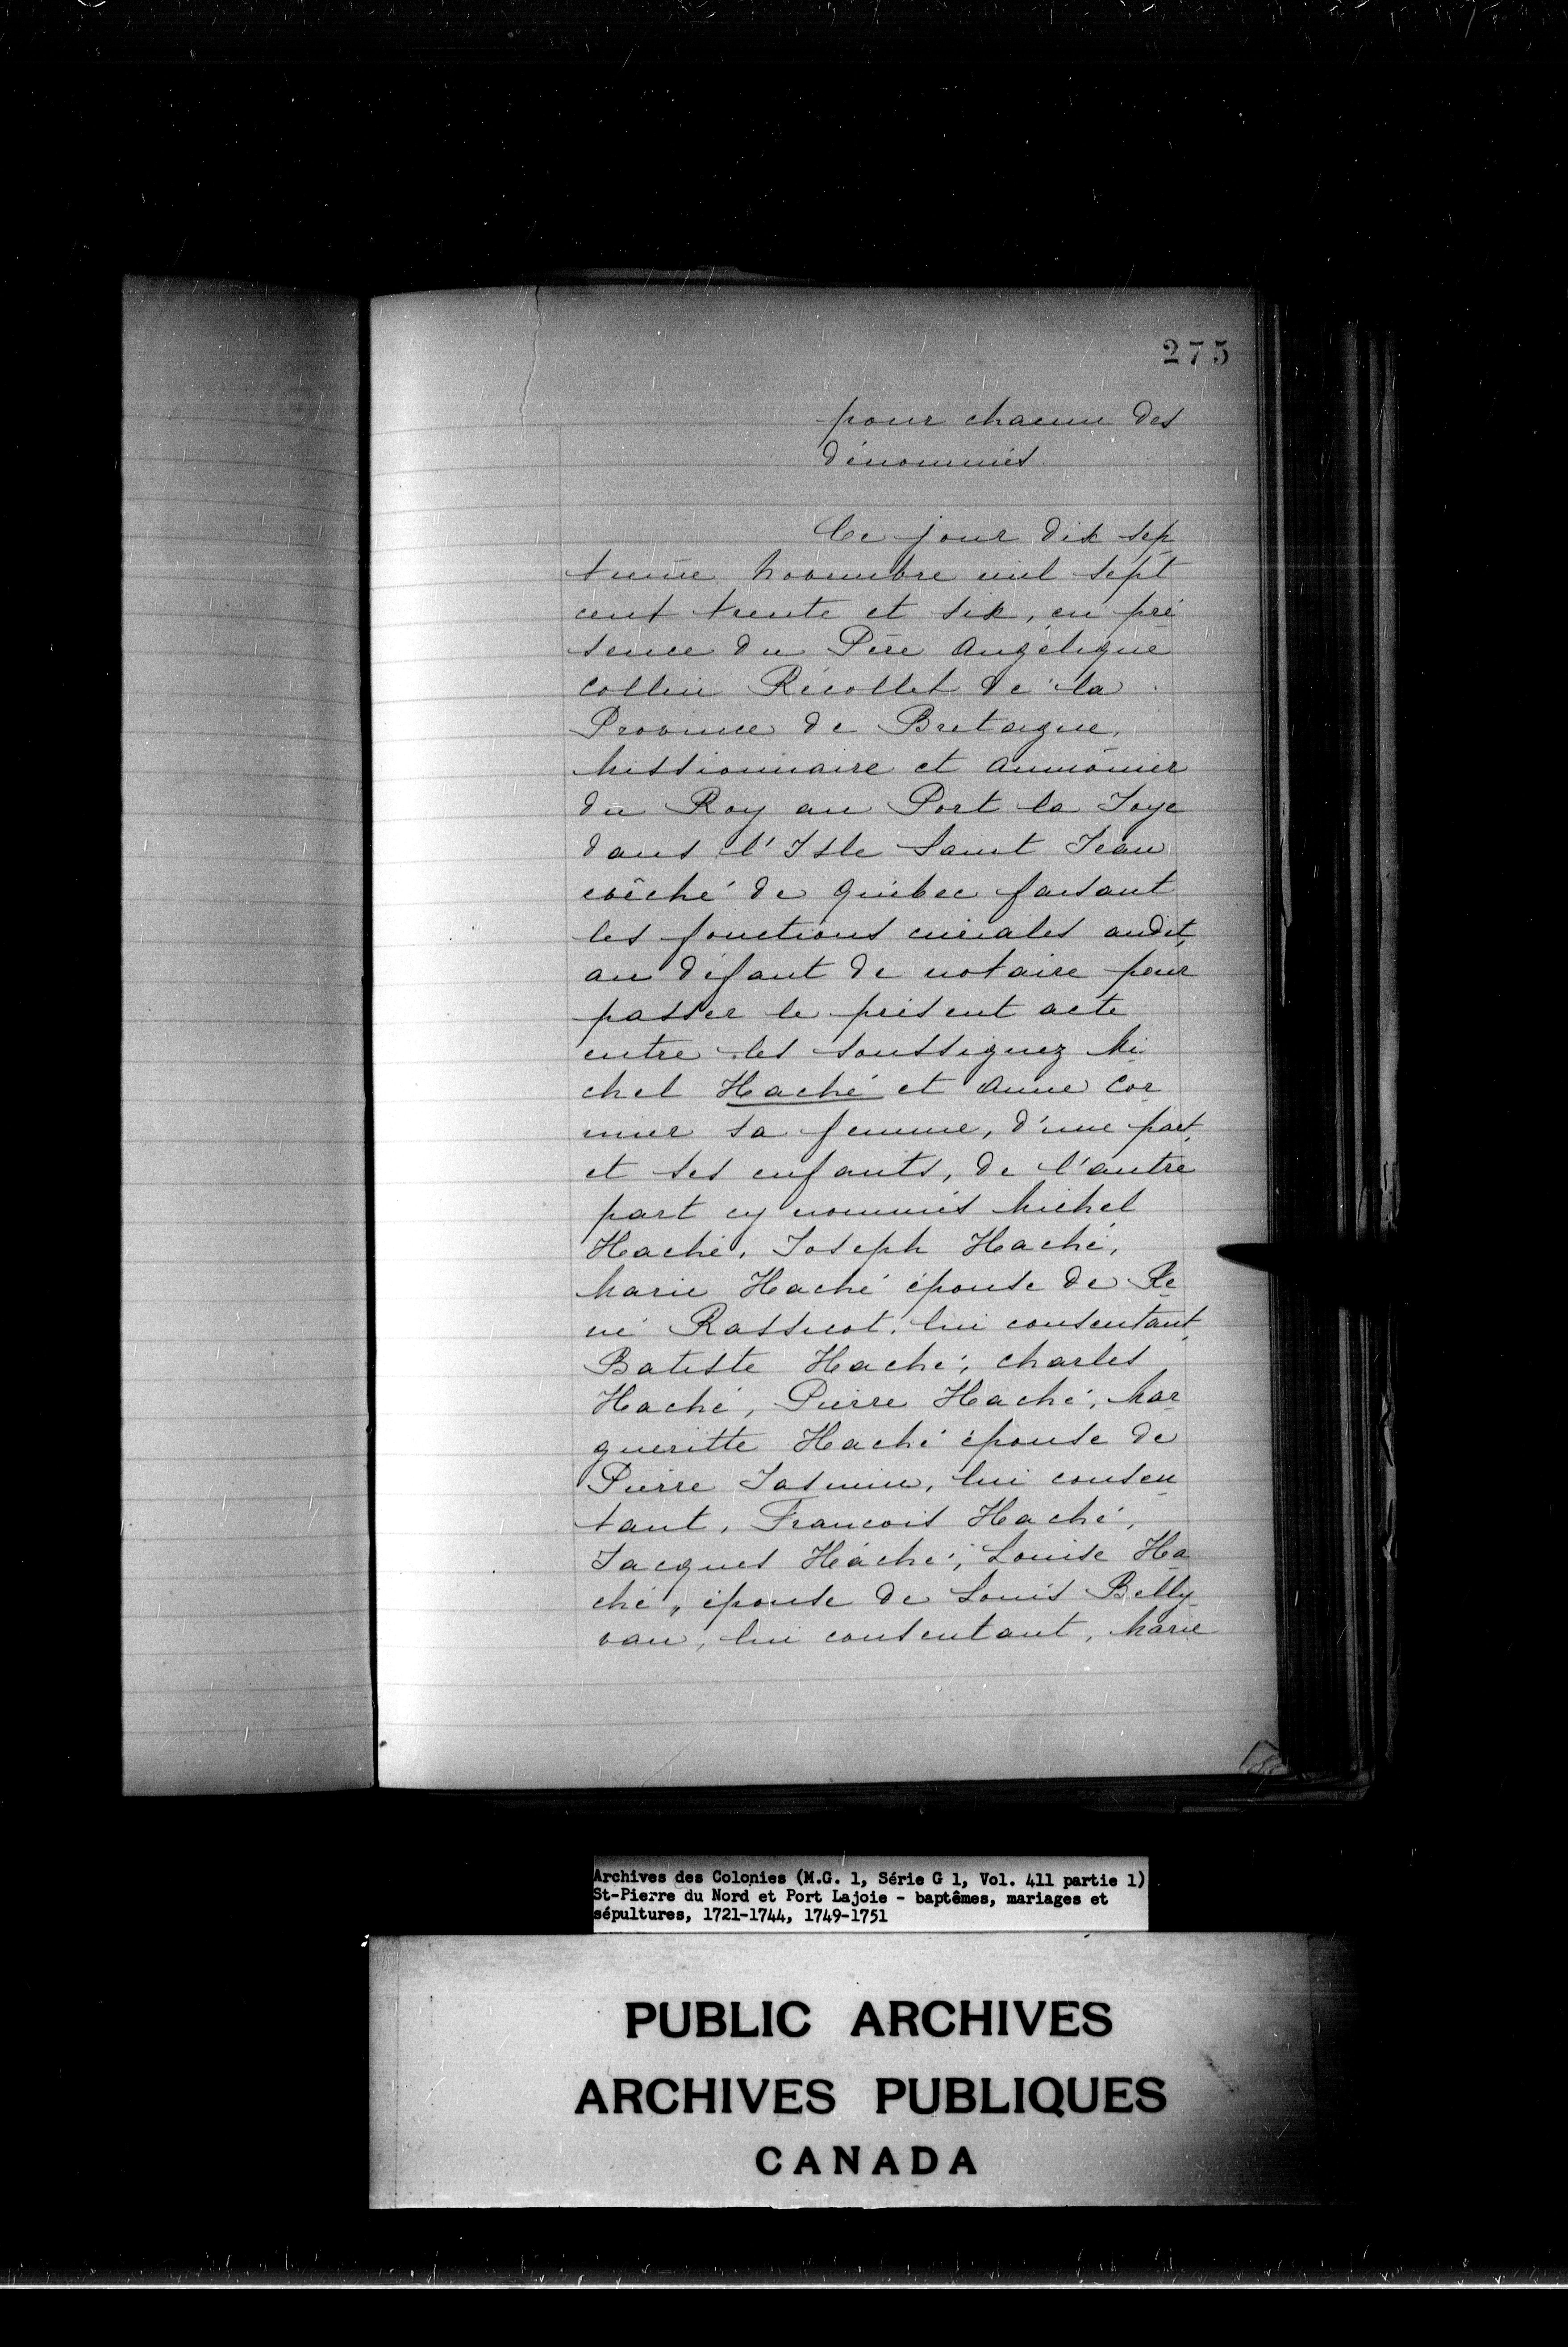 275
pour chacun des
dénommés.
Ce jour dix sep
tieme Novembre mil sept
cent trente et six, en pré
sence du Père Angélique
Collin Récollet de la
Province de Bretagne,
Missionnaire et Aumônier
du Roy au Port la Joye
dans l'Isle Saint Jean
évêché de Québec faisant
les fonctions curiales audit,
au défaut de notaire pour
passer le présent acte
entre les soussignez Mi
chel Haché et Anne Cor
mier sa femme, d'une part,
et ses enfants, de l'autre
part cy nommés Michel
Haché, Joseph Haché,
Marie Haché épouse de Re
né Rassicot, lui consentant,
Batiste Haché, Charles
Haché, Pierre Haché, Mar
gueritte Haché épouse de
Pierre Jasmin, lui consen
tant, Francois Haché,
Jacques Haché, Louise Ha
ché, épouse de Louis Belly
vau, lui consentant, Marie
Archives des Colonies (M.G. 1, Série G 1, Vol. 411 partie 1)
St-Pierre du Nord et Port Lajoie - baptêmes, mariages et
sépultures, 1721-1744, 1749-1751
PUBLIC ARCHIVES
ARCHIVES PUBLIQUES
CANADA